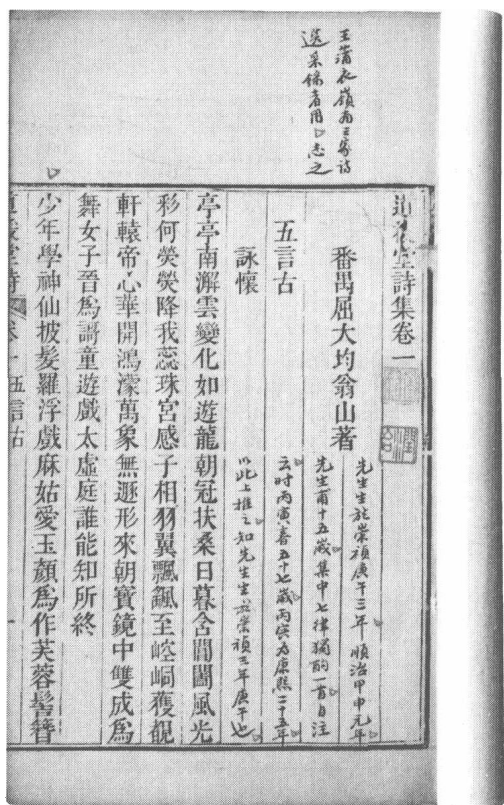 王蒲衣嶺南三家詩
選采錄者用○志之
道援堂詩集卷一
番禺屈大均翁山著
先生生於崇禎庚午三年順治甲申元年
先生甫十五歲集中七律獨酌一首自注
五言古
云时丙寅春五十七歲丙寅为康熙二十五年
詠懷
以此上推之知先生生於崇禎三年庚午也
亭亭南澥雲變化如遊龍朝冠扶桑日暮含閶闔風光
彩何熒熒降我蕊珠宮感子相羽翼飄颻至崆峒獲覩
軒轅帝心華開鴻濛萬象無遯形來朝寶鏡中雙成爲
舞女子晉爲謌童遊戲太虛庭誰能知所終
少年學神仙披髮羅浮戲麻姑愛玉顏爲作芙蓉髻簪
道援堂詩 卷一 五言古 一